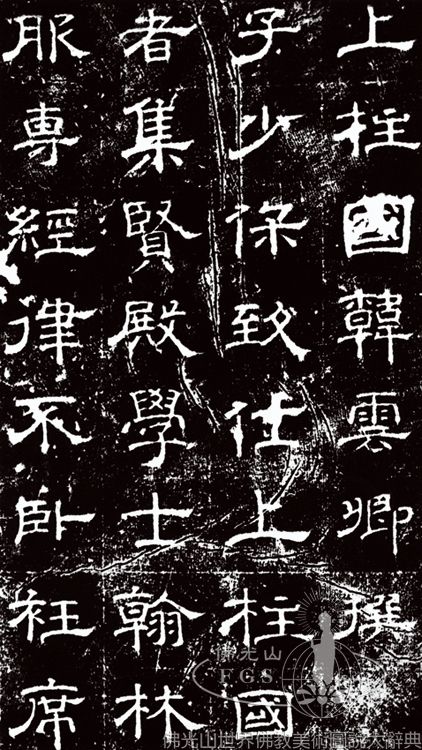 上柱國韓雲卿撰
子少保致仕上柱國
者集賢殿學士翰林
服專經律不卧衽席
佛光山
FGS
佛光山世界佛教美術圖說大辭典